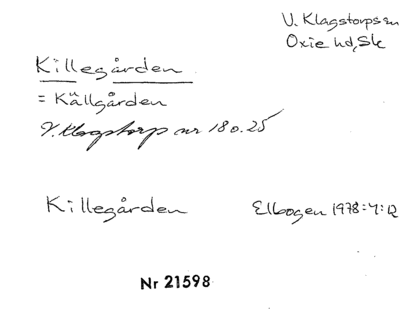 V. Klagstorps sn
Oxie hd, Sk
Killegården
= Källgården
V. Klagstorp nr 18 o. 25
Killegården
Elbogen 1978:4:12
Nr 21598